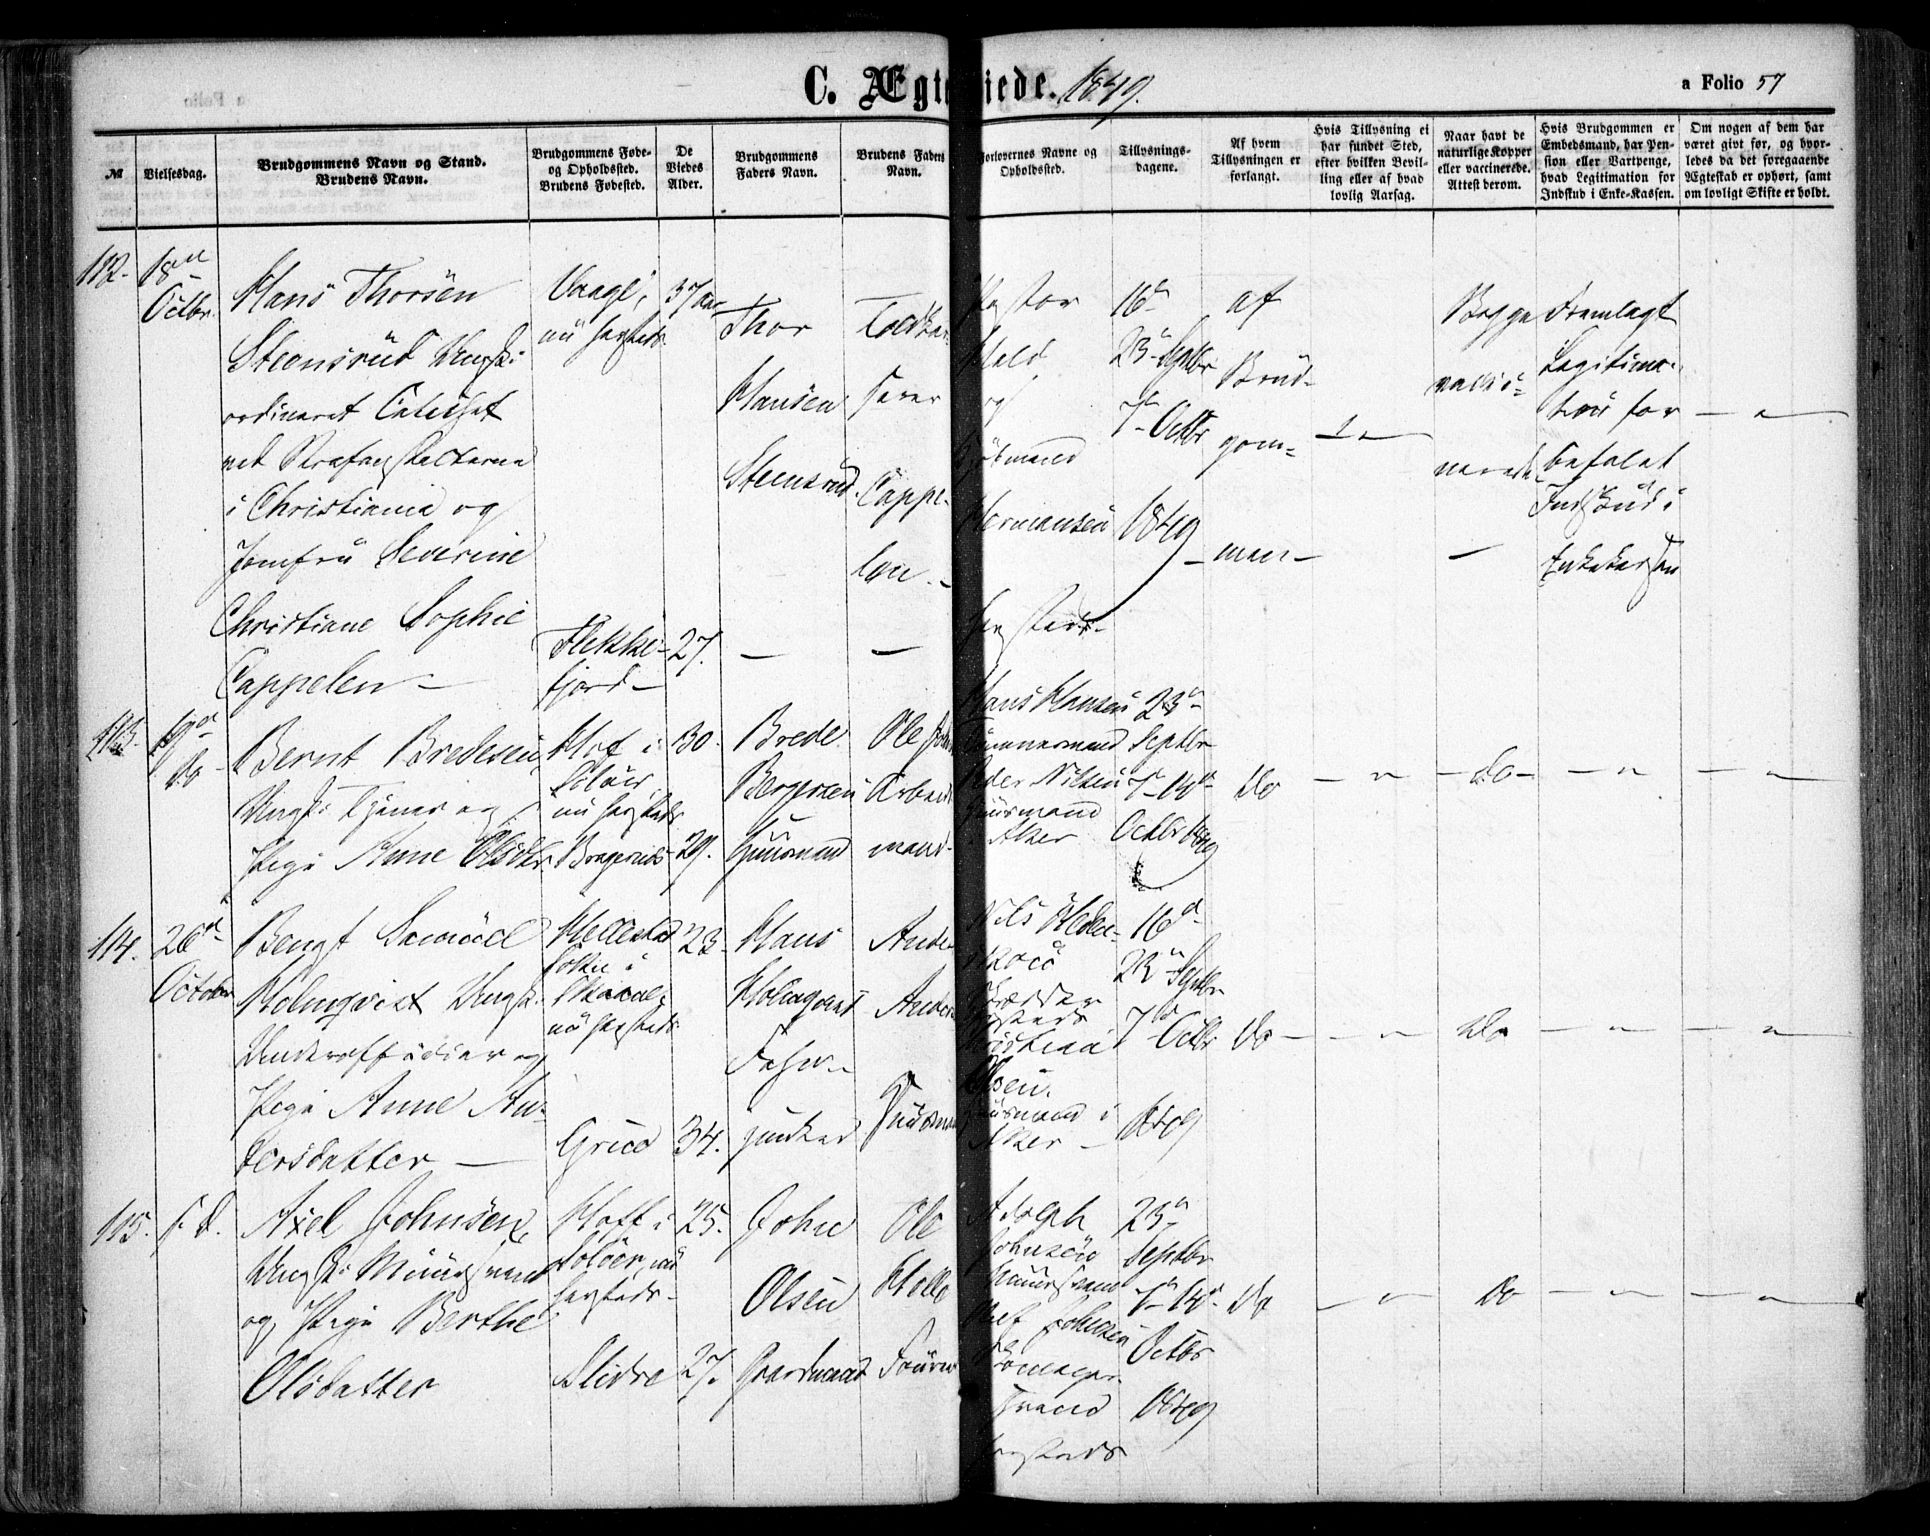 C. Ægteviede. 1849.
a Folio 57
№
Vielsesdag.
Brudgommens Navn og Stand.
Brudens Navn.
Brudgommens Føde-
og Opholdssted.
Brudens Fødested.
De
Viedes
Alder.
Brudgommens
Faders Navn.
Brudens Faders
Navn.
Forlovernes Navne og
Opholdssted.
Tillysnings-
dagene.
Af hvem
Tillysningen er
forlangt.
Hvis Tillysning ei
har fundet Sted,
efter hvilken Bevil-
ling eller af hvad
lovlig Aarsag.
Naar havt de
naturlige Kopper
eller vaccinerede.
Attest derom.
Hvis Brudgommen er
Embedsmand, har Pen-
sion eller Vartpenge,
hvad Legitimation for
Indskud i Enke-Kassen.
Om nogen af dem har
været givt før, og hvor-
ledes da det foregaaende
Ægteskab er ophørt, samt
om lovligt Skifte er holdt.
112.
18
Octbr.
Hans Thorsen
Steensrud Ungk:
ordineret Catechet
ved Strafanstalterne
i Christiania og
Jomfru Severine
Christiane Sophie
Cappelen
nu her steds
Flekke-
fjord
37 aar
27.
Thor
Hansen
Steensrud.
Toldkas-
serer
Cappe-
len
Pastor
Hald
og
Hermansen
her steds
16
23 Septbr
7 Octbr
1849
af
Brud-
gom-
men
Begge
vacci-
nerede
Fremlagt
Legitima-
tion for
befalet
Indskud i
Enkekassen
113.
19
do
Bernt Bredesen
Ungk: Tjener og
Pige Anne Olsdtr.
Hof i
Soløer,
nu her steds
Bragernes
30.
29.
Brede
Bergersen
Huusmand
Ole
Arbeids
mand
Hans Hansen
Tømmermand
Peder Nilsen
Huusmand
Aker
23
Septbr
7 14
Octbr 1849
do
do
114.
26
October
Bengt Samuel
Holmqvist Ungk:
Underofficier og
Pige Anne An-
dersdatter
nu her steds
Grue
23
34.
Hans
Holmqvist
Fahn-
junker
Anders
Anders
Huusmand
Nils
her steds
Christian
Olsen.
Huusmand i
Aker
16
23 Septbr
7 Octbr
1849
do
do
115.
s. d.
Axel Johnsen,
Ungk: Muursvend
og Pige Berthe
Olsdatter
Hoff i
Soløer, nu
her steds
Slidre
25.
27.
John
Olsen
Gaardmand
Ole
Adolph
Johnsen
Muursvend
Johnsen
her steds
23
Septbr
7 14
Octbr
1849
do
do